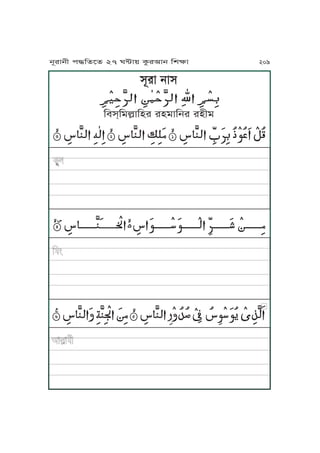 নূরানী পদ্ধতিতে ২৭ ঘণ্টায় কুরআন শিক্ষা ২০৯
সূরা নাস
بِسْمِ اللهِ الرَّحْمٰنِ الرَّحِيْمِ
বিসমিল্লাহির রহমানির রহীম
قُلْ اَعُوْذُ بِرَبِّ النَّاسِ ۝ مَلِكِ النَّاسِ ۝ اِلٰهِ النَّاسِ ۝
কুল
مِنْ شَرِّ الْوَسْوَاسِ الْخَنَّاسِ ۝
মিং
الَّذِىْ يُوَسْوِسُ فِىْ صُدُوْرِ النَّاسِ ۝ مِنَ الْجِنَّةِ وَالنَّاسِ ۝
আল্লাযী